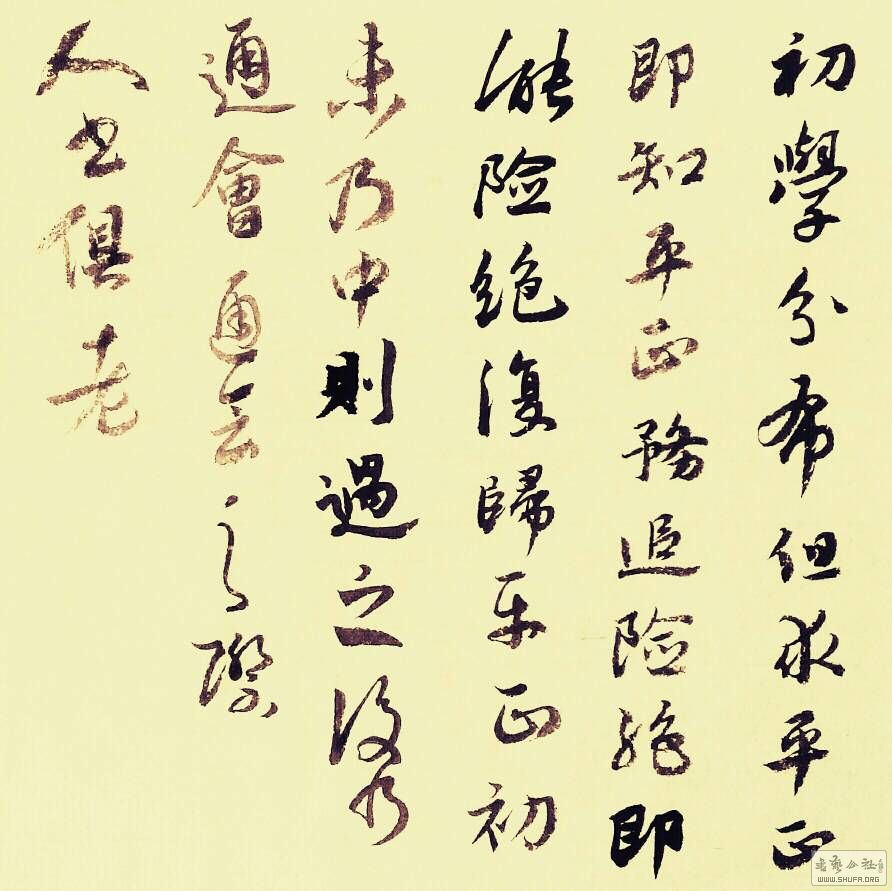 初學分布但求平正
即知平正務追險絕即
能險絕復歸平正初
未乃中則過之後乃
通會通会之際
人書俱老
書藝公社
WWW.SHUFA.ORG